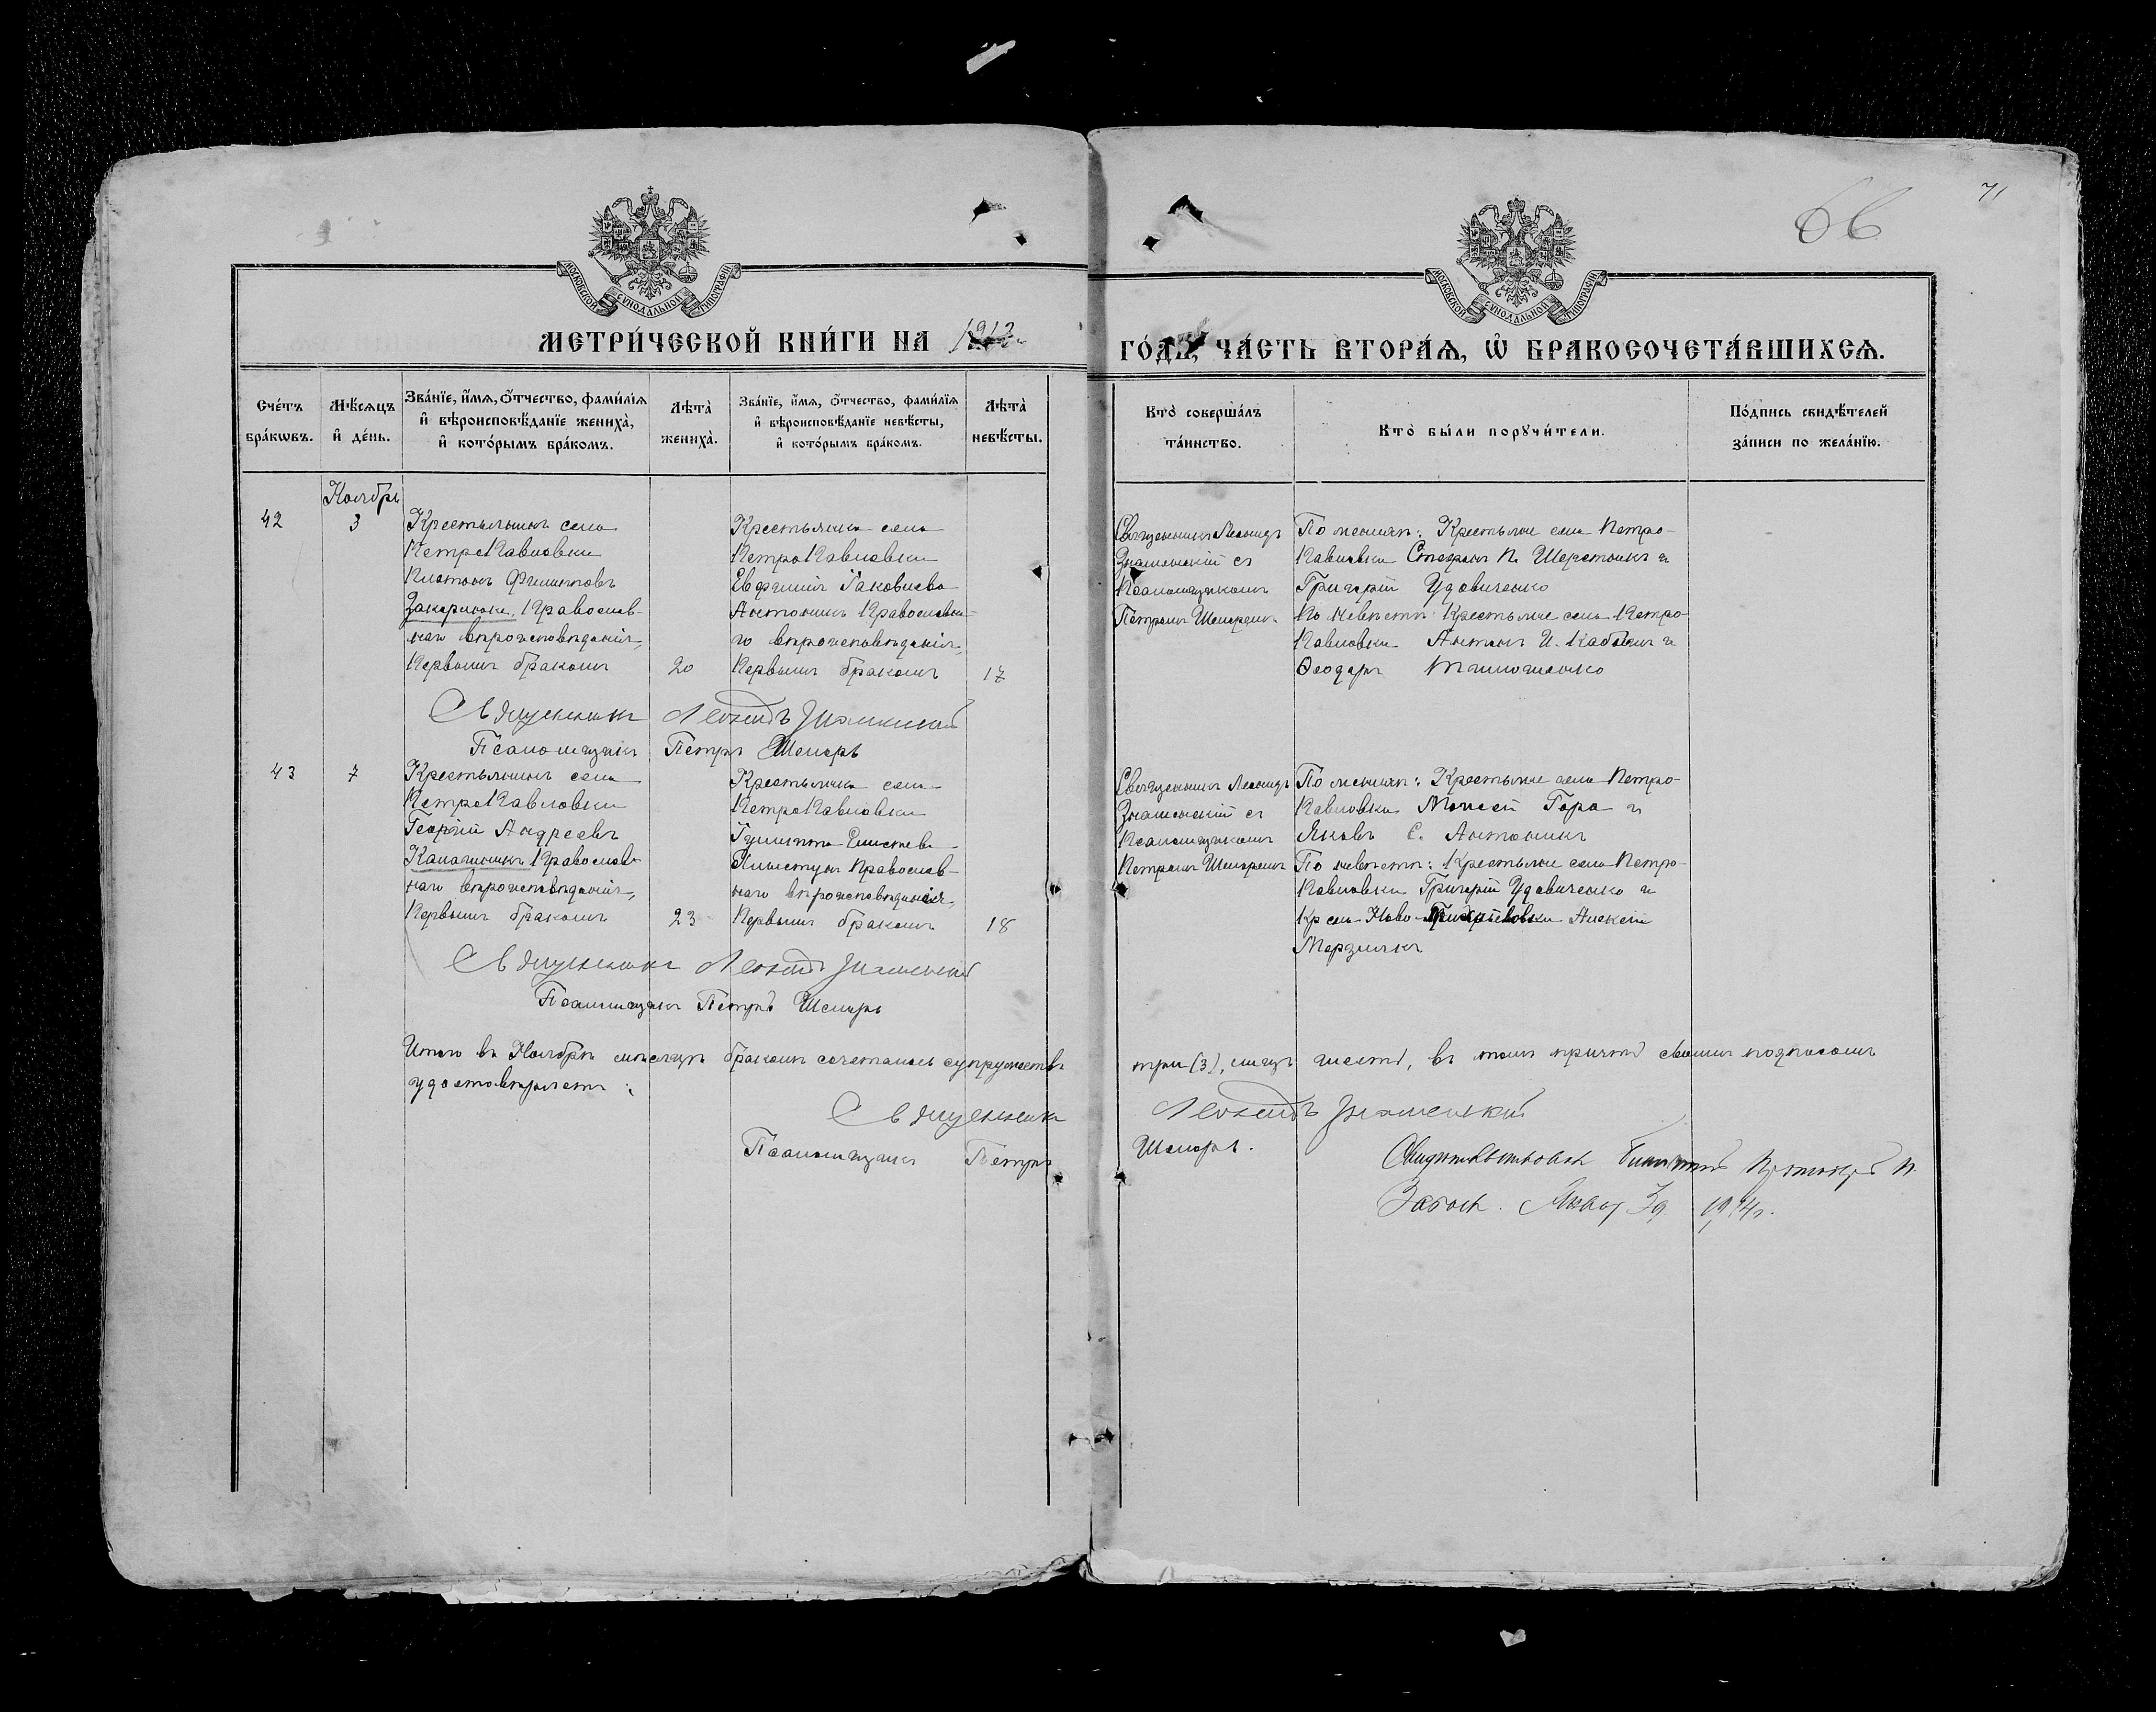 71
66
МОСКОВСКОЙ СѴНОДАЛЬНОЙ ТИПОГРАФІИ
МОСКОВСКОЙ СѴНОДАЛЬНОЙ ТИПОГРАФІИ
МЕТРИ́ЧЕСКОЙ КНИ́ГИ НА 1913
ГО́ДЪ, ЧА́СТЬ ВТОРА́Ѧ, Ѡ БРАКОСОЧЕТА́ВШИХСѦ.
Сче́тъ бра́кѡвъ.
Мѣ́сѧцъ и҆ де́нь.
Зва́нїе, и҆́мѧ, ѻ҆́тчество, фами́лїѧ и҆ вѣроисповѣ́данїе жениха̀, и҆ кото́рымъ бра́комъ.
Лѣта̀ жениха̀.
Зва́нїе, и҆́мѧ, ѻ҆́тчество, фами́лїѧ и҆ вѣроисповѣ́данїе невѣ́сты, и҆ кото́рымъ бра́комъ.
Лѣта̀ невѣ́сты.
Кто̀ соверша́лъ та́инство.
Кто̀ бы́ли порꙋчи́тели.
По́дпись свидѣ́телей за́писи по жела́нїю.
Ноябрь
42
3
Крестьянинъ села
Петро Павловки
Платонъ Филипповъ
Захарченко, Православ-
наго вѣроисповѣданія,
Первымъ бракомъ
20
Крестьянка села
Петро Павловки
Евфимія Яковлева
Антоникъ Православна-
го вѣроисповѣданія,
Первымъ бракомъ
17
Священникъ Леонидъ
Знаменскій съ
Псаломщикомъ
Петромъ
По женихѣ: Крестьяне села Петро-
Павловки Стефанъ П. Шерстюкъ и
Григорій Удовиченко
По невѣстѣ: Крестьяне села Петро-
Павловки Антонъ И. и
Ѳеодоръ Тимошенко
Священникъ Леонидъ Знаменскій
Псаломщикъ Петръ
43
7
Крестьянинъ села
Петро Павловки
Георгій Андреевъ
Православ-
наго вѣроисповѣданія,
Первымъ бракомъ
23
Крестьянка села
Петро Павловки
Православ-
наго вѣроисповѣданія,
Первымъ бракомъ
18
Священникъ Леонидъ
Знаменскій съ
Псаломщикомъ
Петромъ
По женихѣ: Крестьяне села Петро-
Павловки Моисей Гора и
Яковъ С. Антоникъ
По невѣстѣ: Крестьяне села Петро-
Павловки Григорій Удовиченко и
Кр села Ново-Григорьевки Алексій
Мерзлякъ
Священникъ Леонидъ Знаменскій
Псаломщикъ Петръ
Итого въ Ноябрѣ мѣсяцѣ бракомъ сочеталось супружествъ три (3), лицъ шесть, въ томъ причтъ своимъ подписомъ
удостовѣряетъ:
Священникъ Леонидъ Знаменскій
Псаломщикъ Петръ
Свидѣтельствовалъ
1914 г.